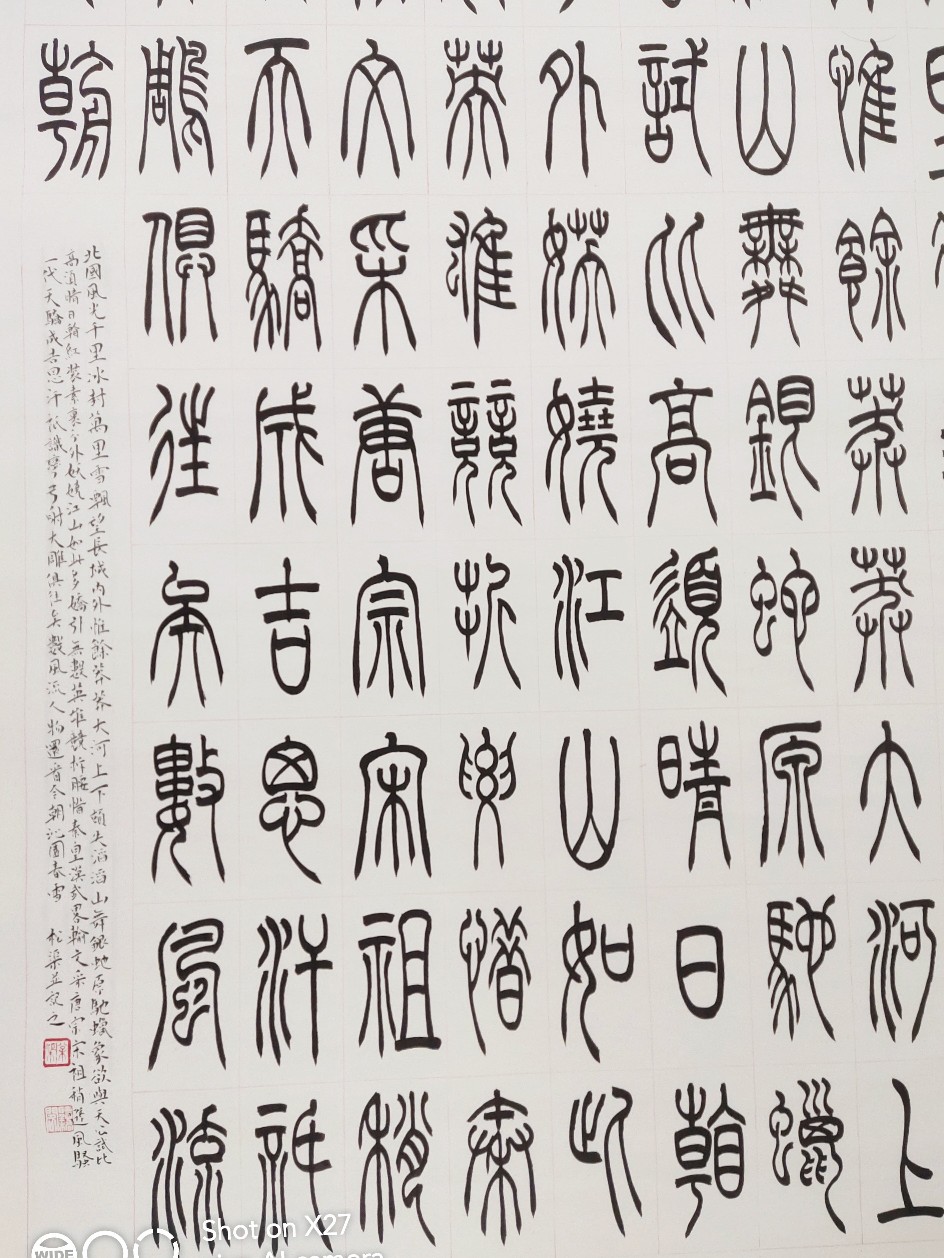 惟餘莽莽大河上
山舞銀蛇原馳蠟
試比高須晴日看
外妖嬈江山如此
英雄競折腰惜秦
文采唐宗宋祖稍
天驕成吉思汗祇
鵰俱往矣數風流
朝
北國風光千里冰封萬里雪飄望長城內外惟餘莽莽大河上下頓失滔滔山舞銀蛇原馳蠟象欲與天公試比
高須晴日看紅裝素裹分外妖嬈江山如此多嬌引無數英雄競折腰惜秦皇漢武畧輸文采唐宗宋祖稍遜風騷
一代天驕成吉思汗祇識彎弓射大雕俱往矣數風流人物還看今朝沁園春雪 松渠並記之
WIDE
Shot on X27
AI camera